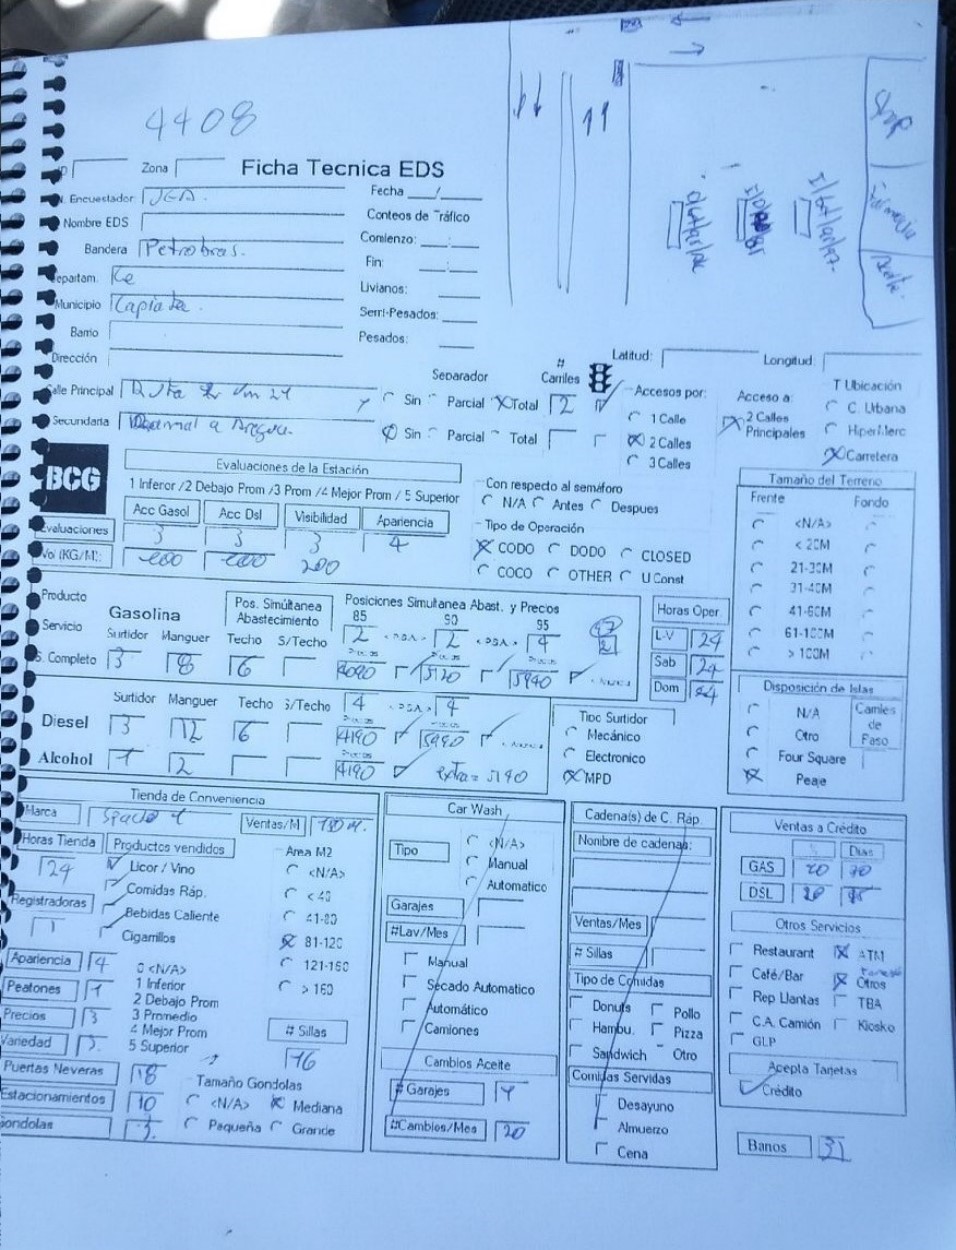 4408
Zona
Ficha Tecnica EDS
Encuestador JEA.
Nombre EDS
Bandera Petrobras.
Departam. Ce
Municipio Capiata.
Barrio
Dirección
Fecha / 
Conteos de Tráfico
Comienzo: :
Fin: :
Livianos:
Semi-Pesados:
Pesados:
Shop
Latitud: Longitud:
Calle Principal Ruta
Secundaria a
Separador
Sin Parcial Total
Sin Parcial Total
# Carriles
2
Accesos por:
1 Calle
2 Calles
3 Calles
Acceso a:
2 Calles Principales
T Ubicación
C. Urbana
HiperMerc
Carretera
BCG
Evaluaciones de la Estación
1 Inferor /2 Debajo Prom /3 Prom /4 Mejor Prom / 5 Superior
Acc Gasol Acc Dsl Visibilidad Apariencia
Evaluaciones 3 3 3 4
Vol (KG/M): 200
Con respecto al semáforo
N/A Antes Despues
Tipo de Operación
CODO DODO CLOSED
COCO OTHER U Const
Tamaño del Terreno
Frente Fondo
<N/A>
< 20M
21-30M
31-40M
41-60M
61-100M
> 100M
Producto
Servicio
S. Completo
Gasolina
Pos. Simúltanea Abastecimiento
Surtidor Manguer Techo S/Techo
3 8 6
Posiciones Simultanea Abast. y Precios
85 90 95
2 2 4
4090 5120 5940
Horas Oper.
L-V 24
Sab 24
Dom 24
Surtidor Manguer Techo S/Techo
Diesel 3 12 6
4 4
4190 5990
Alcohol 1 2
4190
extra= 5190
Tipo Surtidor
Mecánico
Electronico
MPD
Disposición de Islas
N/A
Otro
Four Square
Peaje
Carriles de Paso
Tienda de Conveniencia
Marca Spacio 1
Ventas/M
Horas Tienda
24
Productos vendidos
Licor / Vino
Comidas Ráp.
Bebidas Caliente
Cigarrillos
Registradoras
1
Area M2
<N/A>
< 40
41-80
81-120
121-160
> 160
Apariencia 4
Peatones
Precios 3
Variedad 3
0 <N/A>
1 Inferior
2 Debajo Prom
3 Promedio
4 Mejor Prom
5 Superior
# Sillas
16
Puertas Neveras 18
Estacionamientos 10
Gondolas 3
Tamaño Gondolas
<N/A> Mediana
Pequeña Grande
Car Wash
Tipo
<N/A>
Manual
Automatico
Garajes
#Lav/Mes
Manual
Secado Automatico
Automático
Camiones
Cambios Aceite
# Garajes
#Cambios/Mes 20
Cadena(s) de C. Ráp.
Nombre de cadena:
Ventas/Mes
# Sillas
Tipo de Comidas
Donuts Pollo
Hambu. Pizza
Sandwich Otro
Comidas Servidas
Desayuno
Almuerzo
Cena
Ventas a Crédito
Dias
GAS 20
DSL 20
Otros Servicios
Restaurant ATM
Café/Bar Otros
Rep Llantas TBA
C.A. Camión Kiosko
GLP
Acepta Tarjetas
Crédito
Banos